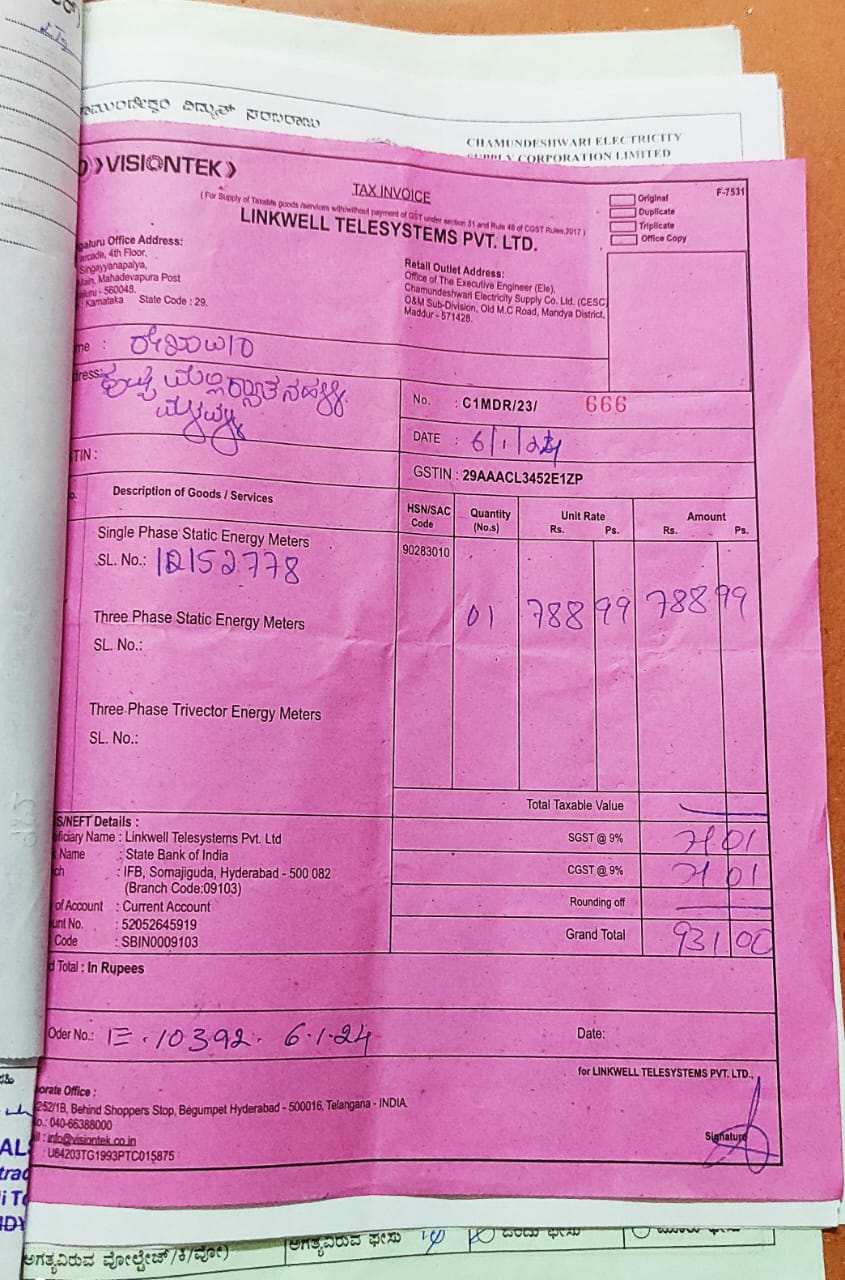 ವಿದ್ಯುತ್ ಸರಬರಾಜು
CHAMUNDESHWARI ELECTRICITY
CORPORATION LIMITED
VISIONTEK
TAX INVOICE
( For Supply of Taxable goods /services with/without payment of GST under section 31 and Rule 46 of CGST Rules,2017 )
LINKWELL TELESYSTEMS PVT. LTD.
F-7531
Original
Duplicate
Triplicate
Office Copy
Office Address:
4th Floor,
Singayyanapalya,
Mahadevapura Post
- 560048.
Karnataka State Code : 29.
Retail Outlet Address:
Office of The Executive Engineer (Ele),
Chamundeshwari Electricity Supply Co. Ltd. (CESC)
O&M Sub-Division, Old M.C Road, Mandya District,
Maddur - 571428.
No. : C1MDR/23/ 666
DATE : 6/1/24
GSTIN : 29AAACL3452E1ZP
Description of Goods / Services
HSN/SAC Code
Quantity (No.s)
Unit Rate Rs. Ps.
Amount Rs. Ps.
Single Phase Static Energy Meters
90283010
SL. No.:
01 788 99 788 99
Three Phase Static Energy Meters
SL. No.:
Three Phase Trivector Energy Meters
SL. No.:
Total Taxable Value
S/NEFT Details :
Name : Linkwell Telesystems Pvt. Ltd
Name : State Bank of India
: IFB, Somajiguda, Hyderabad - 500 082
(Branch Code:09103)
of Account : Current Account
No. : 52052645919
Code : SBIN0009103
SGST @ 9% 71 01
CGST @ 9% 71 01
Rounding off
Grand Total 931 00
Total : In Rupees
Oder No.: E.10392. 6.1.24
Date:
for LINKWELL TELESYSTEMS PVT. LTD.,
Office :
252/1B, Behind Shoppers Stop, Begumpet Hyderabad - 500016, Telangana - INDIA
: 040-66388000
: info@visiontek.co.in
: U64203TG1993PTC015875
Signature
ಅಗತ್ಯವಿರುವ ವೋಲ್ಟೇಜ್/ಕಿ/ವೋ)
ಅಗತ್ಯವಿರುವ ಫೇಸು
ಒಂದು ಫೇಸು